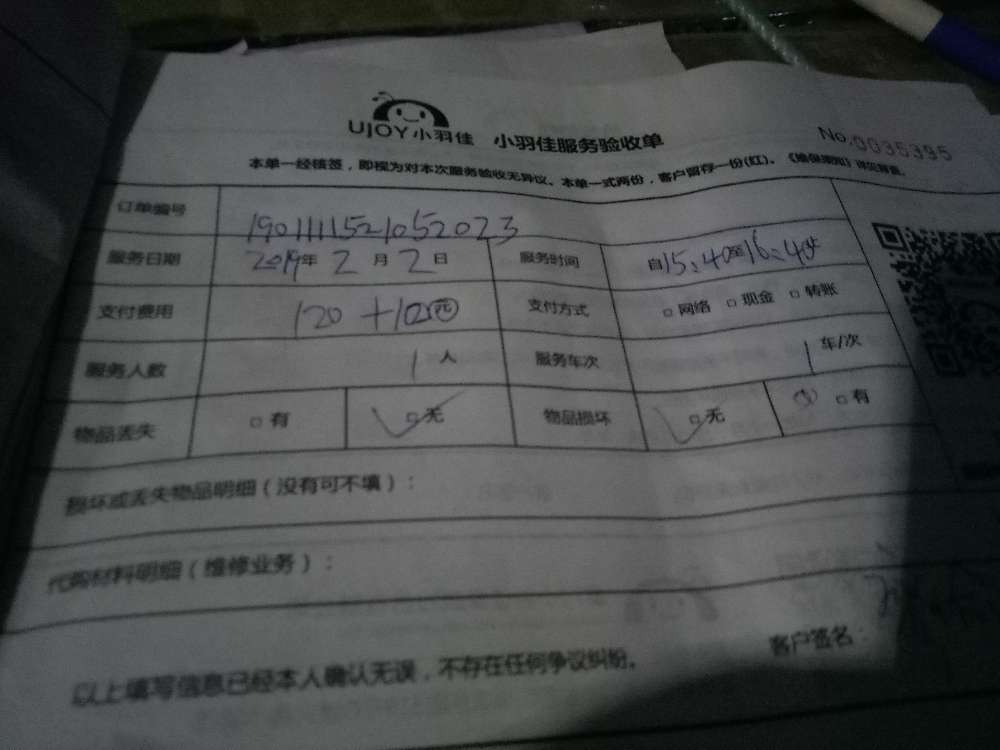 UJOY小羽佳 小羽佳服务验收单 No.0035395
本单一经核签，即视为对本次服务验收无异议、本单一式两份，客户留存一份(红)。《维保须知》详见背面。
订单编号 1901111521052023
服务日期 2019年 2月 2日 服务时间 自15:40至16:40
支付费用 120 +10 支付方式 □网络 □现金 □转账
服务人数 1人 服务车次 1车/次
物品丢失 □有 □无 物品损坏 □无 □有
损坏或丢失物品明细（没有可不填）：
代购材料明细（维修业务）：
以上填写信息已经本人确认无误，不存在任何争议纠纷。 客户签名：